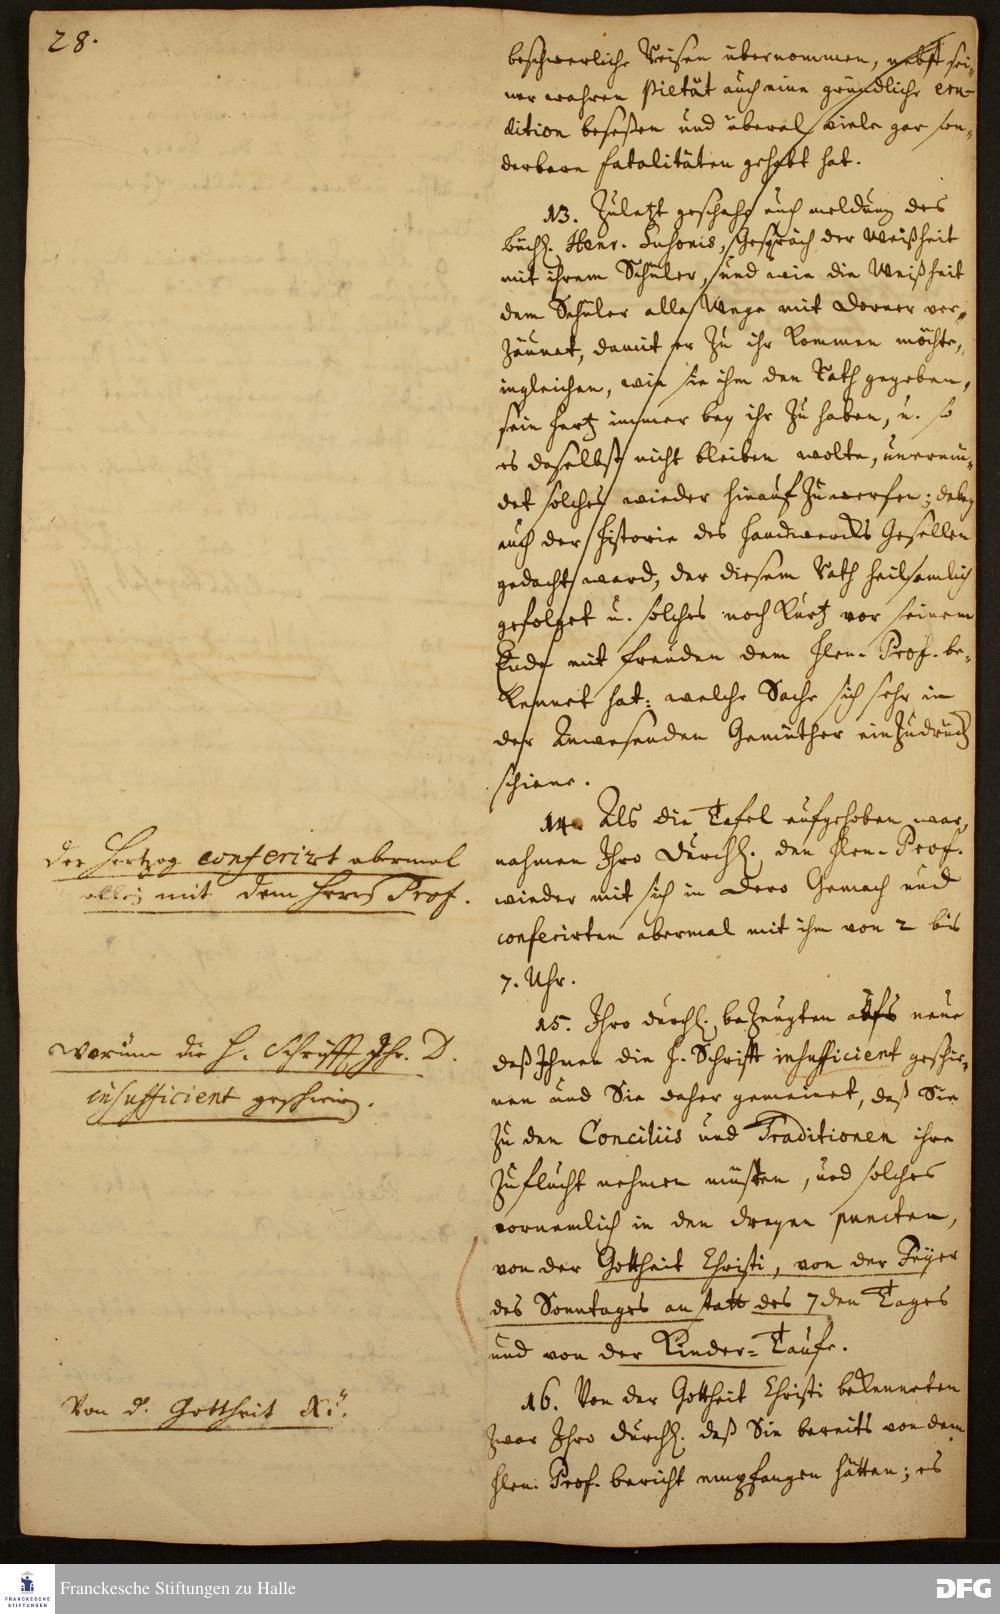 28.
beschwerliche Reisen übernommen, nebst sei-
ner wahren Pietät auch eine gründliche eru-
dition beseßen und überal viele gar son-
derbare fatalitäten gehabt hat.
13. Zuletzt geschahe auch meldung des
büchl. Henr. Susonis, Gespräch der Weißheit
mit ihrem Schüler, und wie die Weißheit
dem Schüler alle Wege mit Dorner ver-
zäunet, damit er zu ihr kommen möchte,
ingleichen, wie sie ihm den Rath gegeben,
sein Hertz immer bey ihr zu haben, u. so
es daselbst nicht bleiben wolte, unermü-
det solches wieder hinauf zu werfen; dabey
auch der Historie des Handwercks Gesellen
gedacht ward, der diesem Rath heilsamlich
gefolget u. solches noch kurtz vor seinem
Ende mit freuden dem Hrn. Prof. be-
kennet hat: welche Sache sich sehr in
der Anwesenden Gemüther einzudrucken
schiene.
14. Als die Tafel aufgehoben war,
nahmen Ihro Durchl. den Hrn. Prof.
wieder mit sich in Dero Gemach und
conferirten abermal mit ihm von 2 bis
7. Uhr.
der Hertzog conferirt abermal
allein mit dem Herrn Prof.
15. Ihro Durchl. bezeugten aufs neue
daß Ihnen die H. Schrifft insufficient geschie-
nen und Sie daher gemeinet, daß Sie
zu den Conciliis und Traditionen ihre
Zuflucht nehmen müsten, und solches
vornemlich in den dreyen puncten,
von der Gottheit Christi, von der Feyer
des Sonntages an statt des 7den Tages
und von der Kinder-Taufe.
Warum die H. Schrifft Ihr. D.
insufficient geschienen.
16. Von der Gottheit Christi bekenneten
zwar Ihro Durchl. daß Sie bereits von dem
Hrn. Prof. bericht empfangen hätten; es
Von d. Gottheit Xi.
FRANCKESCHE
STIFTUNGEN
Franckesche Stiftungen zu Halle
DFG